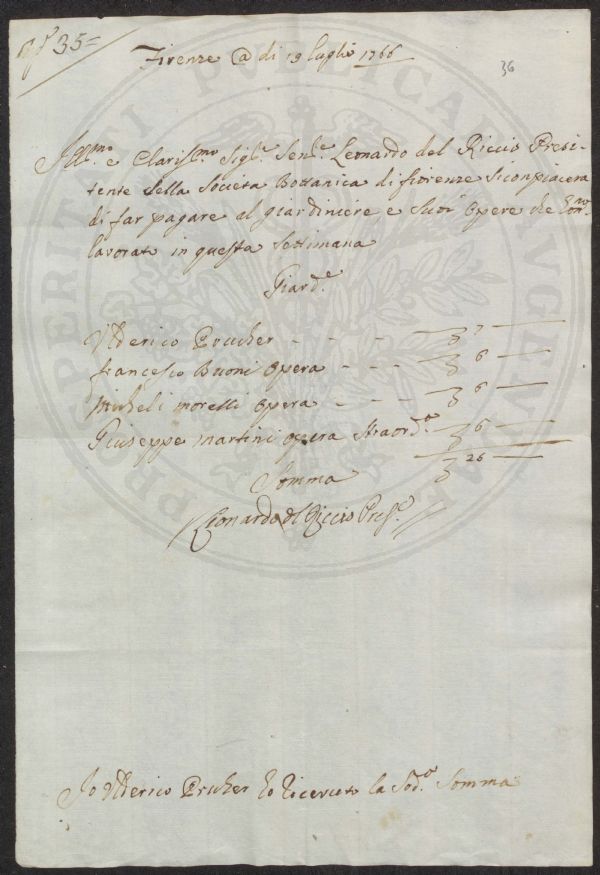 N.º 35=
36
Firenze @ di 19 Luglio 1766
Ill:mo e Clariss:mo Sigl:e Sen:e Leonardo del Riccio Presi-
tente della Società Bottanica di fiorenze si conpiacera
di far pagare al giardiniere e Suoi opere che Con:no
lavorato in questa Settimana
Giard:e
Vlderico Prucher - - - 7 —
francesco Buoni Opera - - - 6 —
Micheli morelli Opera - - - 6 —
Giuseppe martini opera Straord:a 6 —
Somma 26 —
Leonardo del Riccio Pres:e
Io Vlderico Prucher ho ricevuto la Sod:a Somma
PROSPERITATI PUBLICAE AUGENDAE